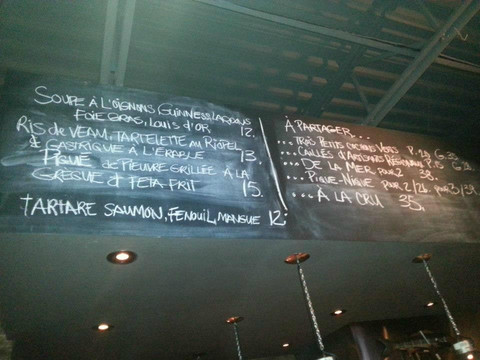 SOUPE À L'OIGNONS, GUINNESS, LARDONS
FOIE GRAS, LOUIS D'OR 12.
RIS de VEAU, TARTELETTE AU RIOPEL
& GASTRIQUE À L'ÉRABLE 13.
PIQUÉ de PIEUVRE GRILLÉE À LA
GRECQUE & FETA. FRIT 15.
TARTARE SAUMON, FENOUIL, MANGUE 12.
À PARTAGER...
...TROIS PETITS COCHONS VERTS
...CAILLES
...DE LA MER POUR 2 38.
...PIQUE-NIQUE POUR 2/26. POUR 3/39.
...À LA CRU 35.